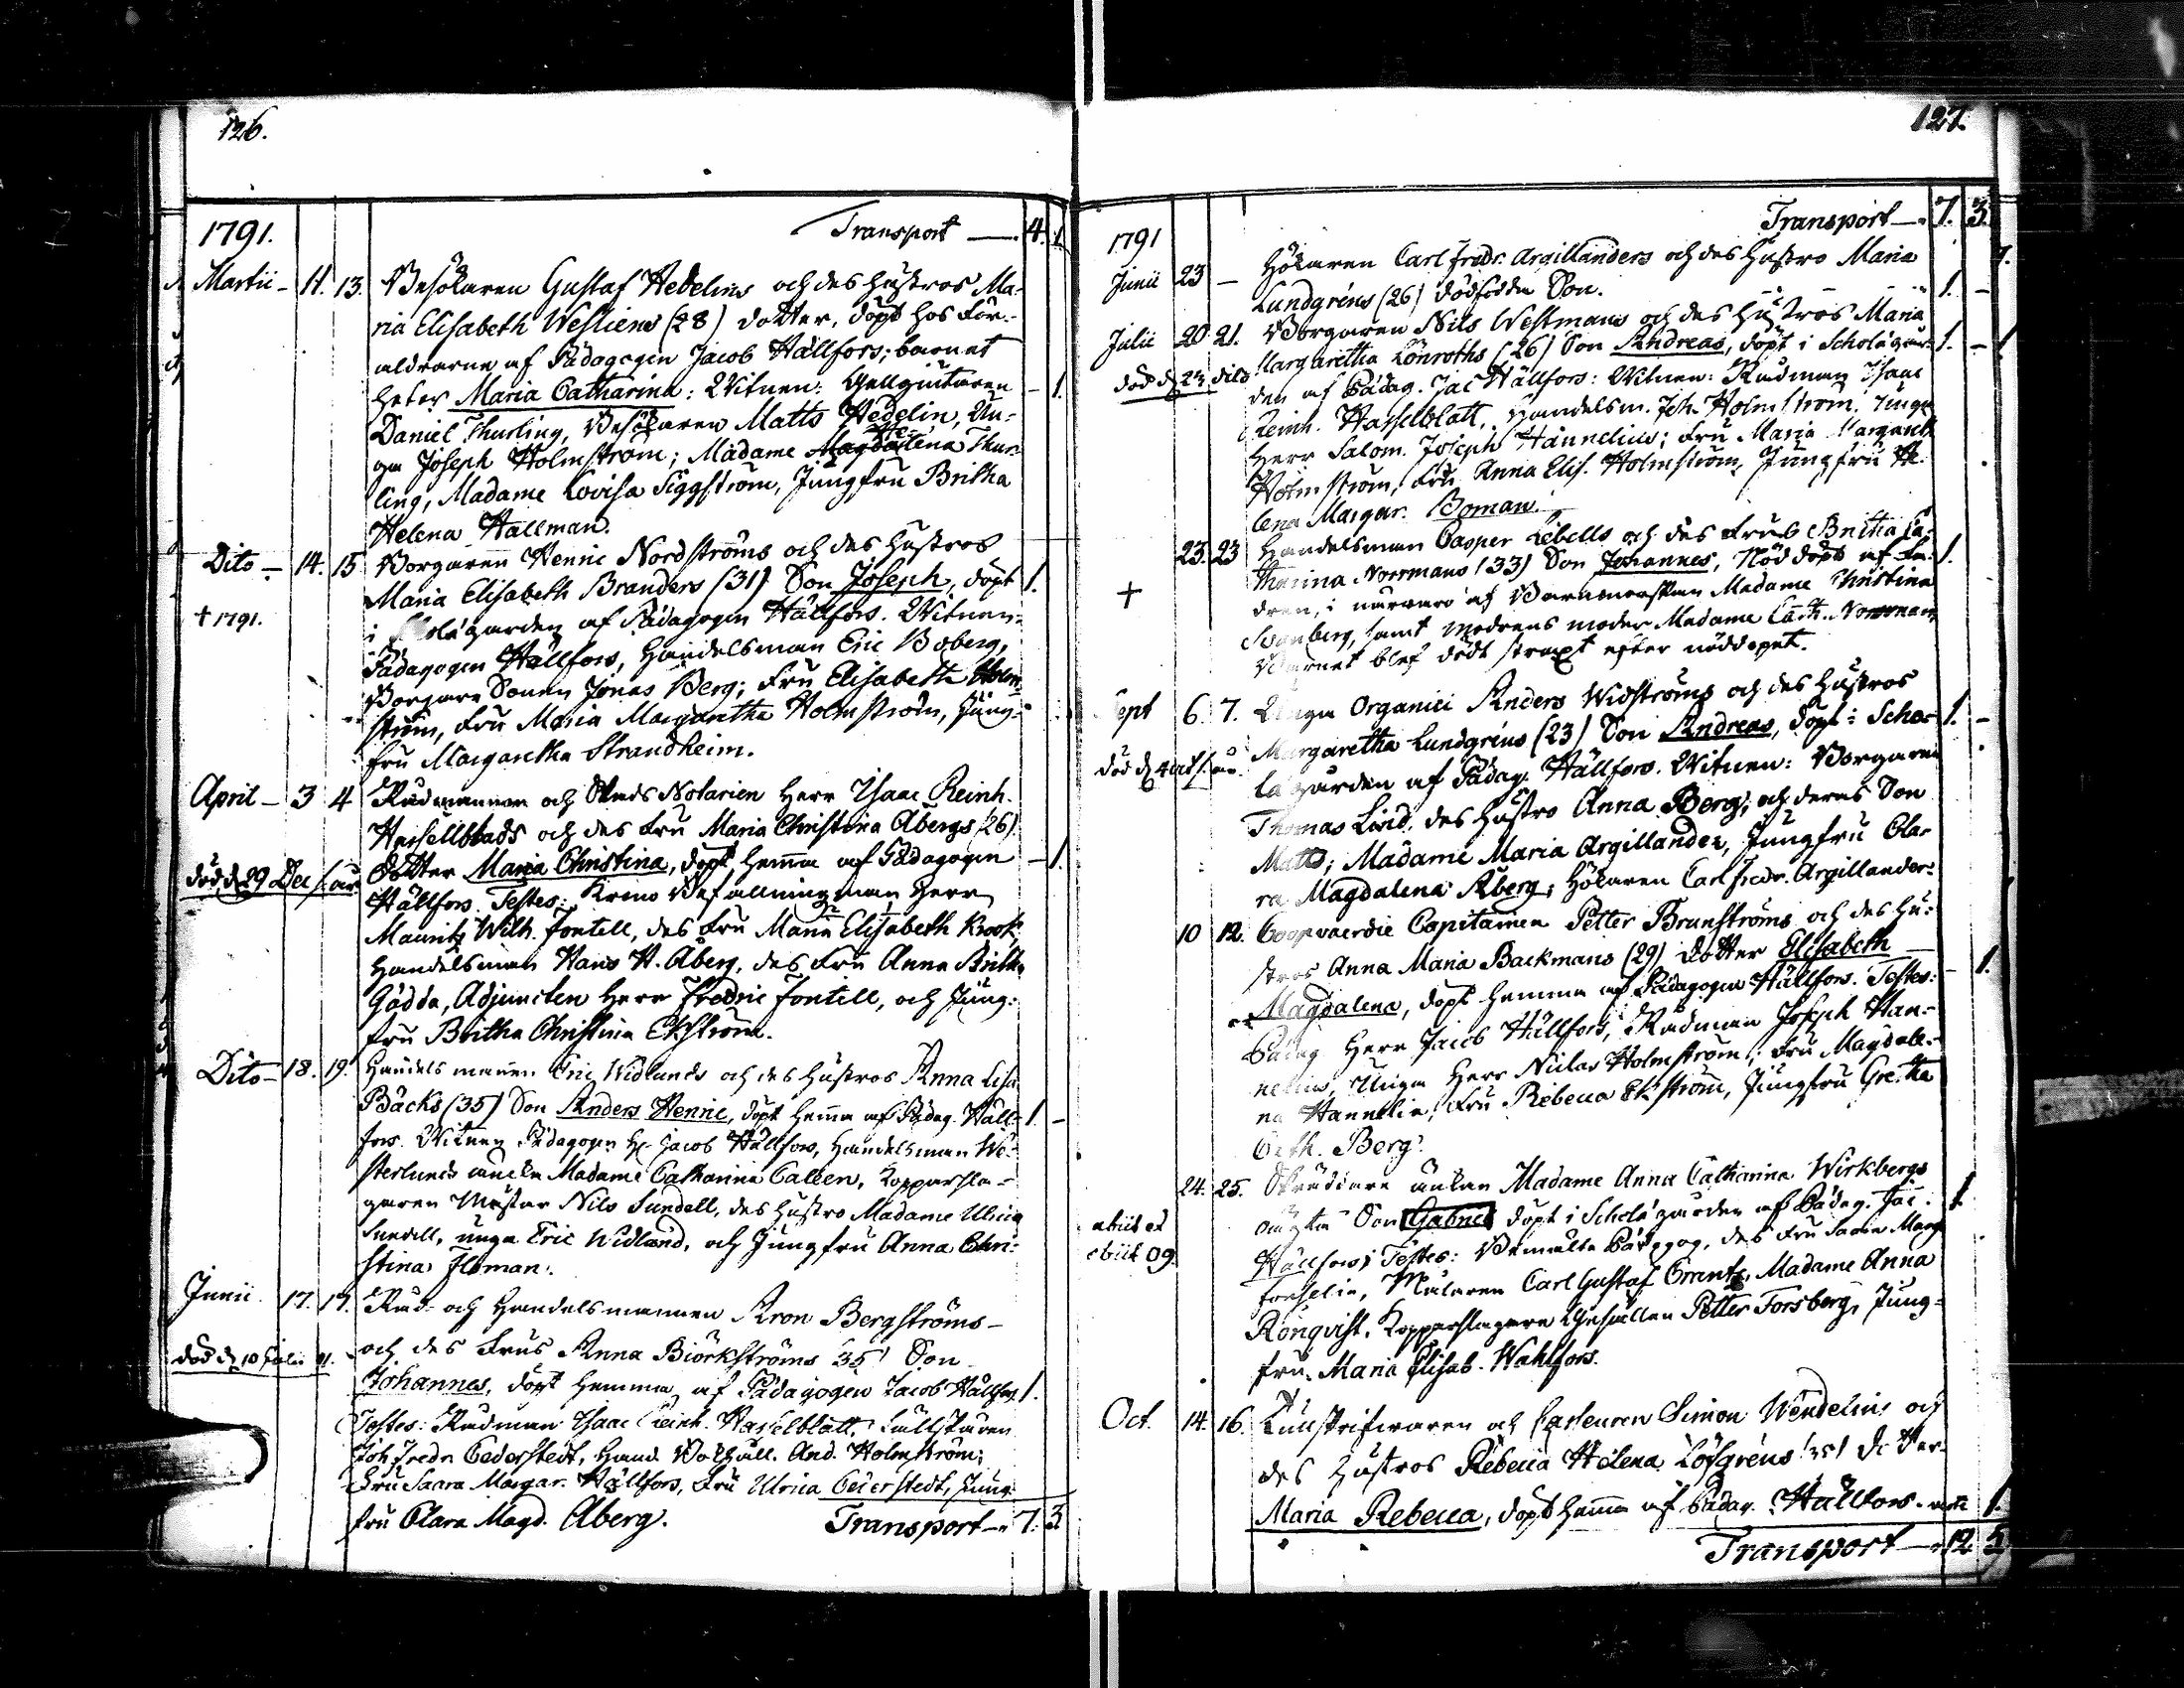 126.
1791. Transport — 4. 1.
Martii — 11. 13. Besökaren Gustaf Hedelins och des Hustros Ma-
ria Elisabeth Westliens (28) dotter, döpt hos För-
äldrarne af Pädagogen Jacob Hällfors; barnet
heter Maria Catharina: Witnen: Gellgiutaren — 1.
Daniel Thurling, Besökaren Matts Hedelin, Un-
ge Joseph Holmström; Madame Magdalena Thur-
ling, Madame Lovisa Siggström, Jungfru Britha
Helena Hallman.
Dito — 14. 15 Borgaren Henric Nordströms och des Hustros
Maria Elisabeth Branders (31) Son Joseph, döpt 1.
† 1791. i Scholægården af Pädagogen Hällfors. Witnen:
Pädagogen Hällfors, Handelsman Eric Boberg,
Borgare Sonen Jonas Berg; Fru Elisabeth Holm-
ström, Fru Maria Margaretha Holmström, Jung-
fru Margaretha Strandheim.
April — 3 4 Rådmannen och Stads Notarien Herr Isaac Reinh.
Hasselblads och des Fru Maria Christina Åbergs (26)
dotter Maria Christina, döpt hemma af Pädagogen — 1.
död d 29 Dec s. år Hällfors. Testes: Krono Befallningsman Herr
Mauritz Wilh. Fontell, des Fru Maria Elisabeth Krook,
Handelsman Hans H. Åberg, des Fru Anna Britha
Gädda, Adjuncten Herr Fredric Fontell, och Jung-
fru Britha Christina Ekström.
Dito — 18. 19. Handelsmannen Eric Widlunds och des Hustros Anna Lisa
Bäcks (35) Son Anders Henric, döpt hemma af Pädag. Häll- 1. —
fors. Witnen Pädagogen Hr Jacob Hällfors, Handelsman We-
sterlunds Madame Catharina Caleen, Kopparsla-
garen Mäster Nils Sundell, des Hustro Madame Ulrica
Sundell, unge Eric Widland, och Jungfru Anna Chri-
stina Floman.
Junii 17. 17. Råd- och Handelsmannen Aron Bergströms
och des Frus Anna Biörkströms 35 Son
död d 10 Julii 91.
Johannes, döpt hemma af Pädagogen Jacob Hällfors 1.
Testes: Rådman Isaac Reinh. Hasselblatt,
Joh. Fredr. Cederstedt, Hand. And. Holmström;
Fru Saara Margar. Hällfors, Fru Ulrica Cederstedt, Jung-
fru Clara Magd. Åberg. Transport — 7. 3
127.
1791 Transport — 7. 3.
Junii 23 — Hökaren Carl Fredr. Argillanders och des Hustro Maria
Lundgréns (26) dödfödda Son. 1. —
Julii 20. 21. Borgaren Nils Westmans och des Hustros Maria
Margaretha Lönroths (26) Son Andreas, döpt i Scholægår- 1. —
död d 27 dito den af Pädag. Jac Hällfors: Witnen: Rådman Isaac
Reinh. Hasselblatt, Handelsm. Joh. Holmström, unge
Herr Salom. Joseph Hannelius; Fru Maria Margareth
Holmström, Fru Anna Elis. Holmström, Jungfru He-
lena Margar. Boman.
23. 23 Handelsman Casper Lebells och des Frus Britha Ca-
tharina Norrmans (33) Son Johannes, Nöddöpt af Fa- 1.
† dren, i närvaro af Barnmorskan Madame Christina
Svanberg, samt modrens moder Madame Cath. Norrman
Barnet blef dödt straxt efter nöddopet.
Sept 6. 7. Unge Organici Anders Widströms och des Hustros
Margaretha Lundgréns (23) Son Andreas, döpt i Scho- 1. —
död d 4 oct s. år. lægården af Pädag. Hällfors. Witnen: Borgaren
Thomas Lind, des Hustro Anna Berg, och deras Son
Matts; Madame Maria Argillander, Jungfru Cla-
ra Magdalena Åberg; Hökaren Carl Fredr. Argillander.
10 12. Coopvaerdie Capitainen Petter Brunströms och des Hu-
stros Anna Maria Backmans (29) dotter Elisabeth
Magdalena, döpt hemma af Pädagogen Hällfors. Testes: — 1.
Pädag. Herr Jacob Hällfors, Rådman Joseph Han-
nelius, Unge Herr Niclas Holmström; Fru Magdale-
na Hannelia, Fru Rebecca Ekström, Jungfru Gretha
Cath. Berg.
24. 25. Skräddare änkan Madame Anna Catharina Wirkbergs
oäkta Son Gabriel döpt i Scholægården af Pädag. Jac. 1.
abiit et
obiit 09.
Hällfors; Testes: Bemälte Pädagog, des Fru Saara Marg.
Forselia, Målaren Carl Gustaf Frantz, Madame Anna
Rönqvist, Kopparslagare Gesällen Petter Forsberg, Jung-
fru Maria Elisab. Wahlfors.
Oct. 14. 16. och Simon Wendelins och
des Hustros Rebecca Helena Löfgréns dotter
Maria Rebecca, döpt hemma af Pädag. Hällfors. verte 1.
Transport — 12 5